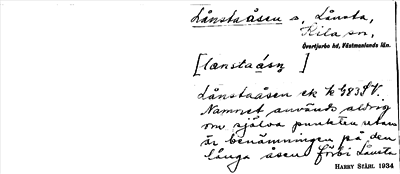 Lånstaåsen s, Lånsta,
Kila sn,
Övertjurbo hd, Västmanlands län.
[lænstaásn ]
Lånstaåsen ek k 983 SV.
Namnet används aldrig
om själva punkten utan
är benämningen på den
långa åsen förbi Lånsta
HARRY STÅHL 1934